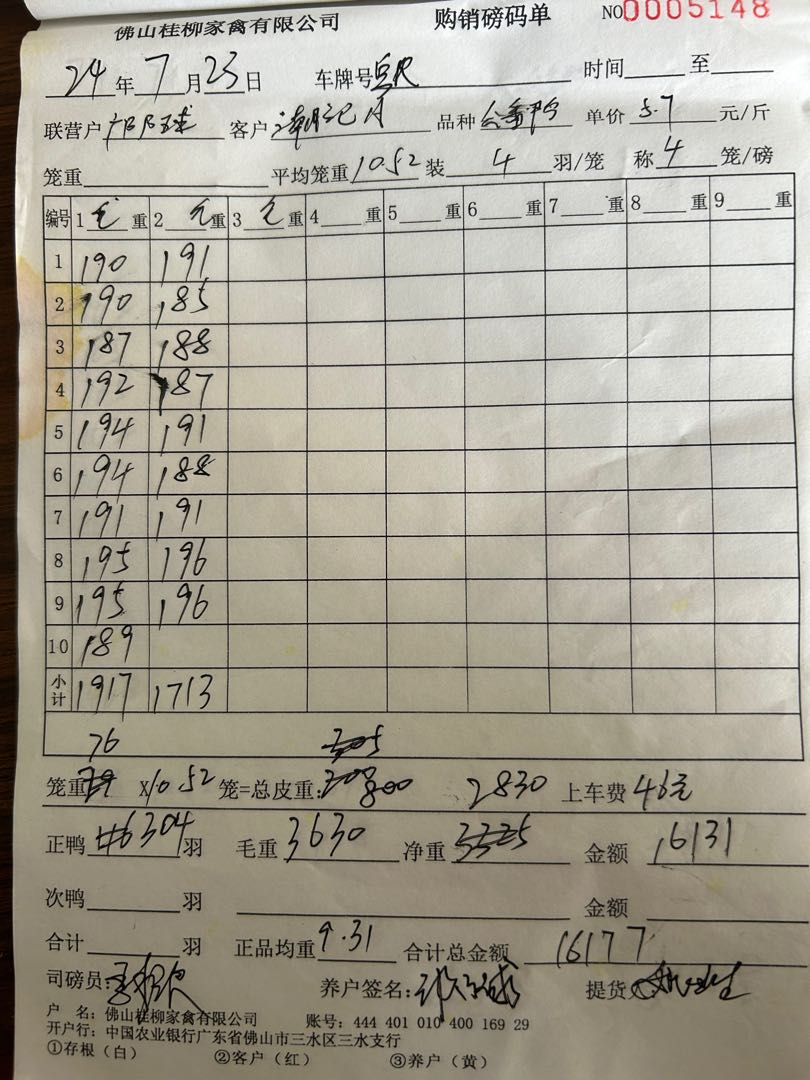 佛山桂柳家禽有限公司 购销磅码单 NO0005148
24年7月23日 车牌号 时间 至
联营户 客户 品种 单价5.7元/斤
笼重 平均笼重10.52装4羽/笼 称4笼/磅
编号 1毛重 2毛重 3毛重 4重 5重 6重 7重 8重 9重
1 190 191
2 190 185
3 187 188
4 192 187
5 194 191
6 194 188
7 191 191
8 195 196
9 195 196
10 189
小计 1917 1713
76
笼重 X10.52笼=总皮重:800 2830 上车费46元
正鸭304羽 毛重3630 净重 金额16131
次鸭 羽 金额
合计 羽 正品均重9.31 合计总金额16177
司磅员: 养户签名: 提货
户 名:佛山桂柳家禽有限公司 账号:444 401 010 400 169 29
开户行:中国农业银行广东省佛山市三水区三水支行
①存根(白) ②客户(红) ③养户(黄)